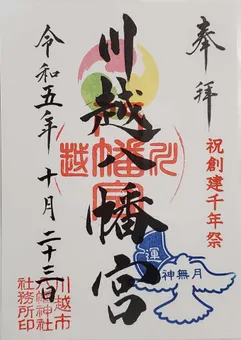 奉拝
祝創建千年祭
川越八幡宮
運
神無月
令和五年十月二十三日
川越市
八幡神社
社務所印